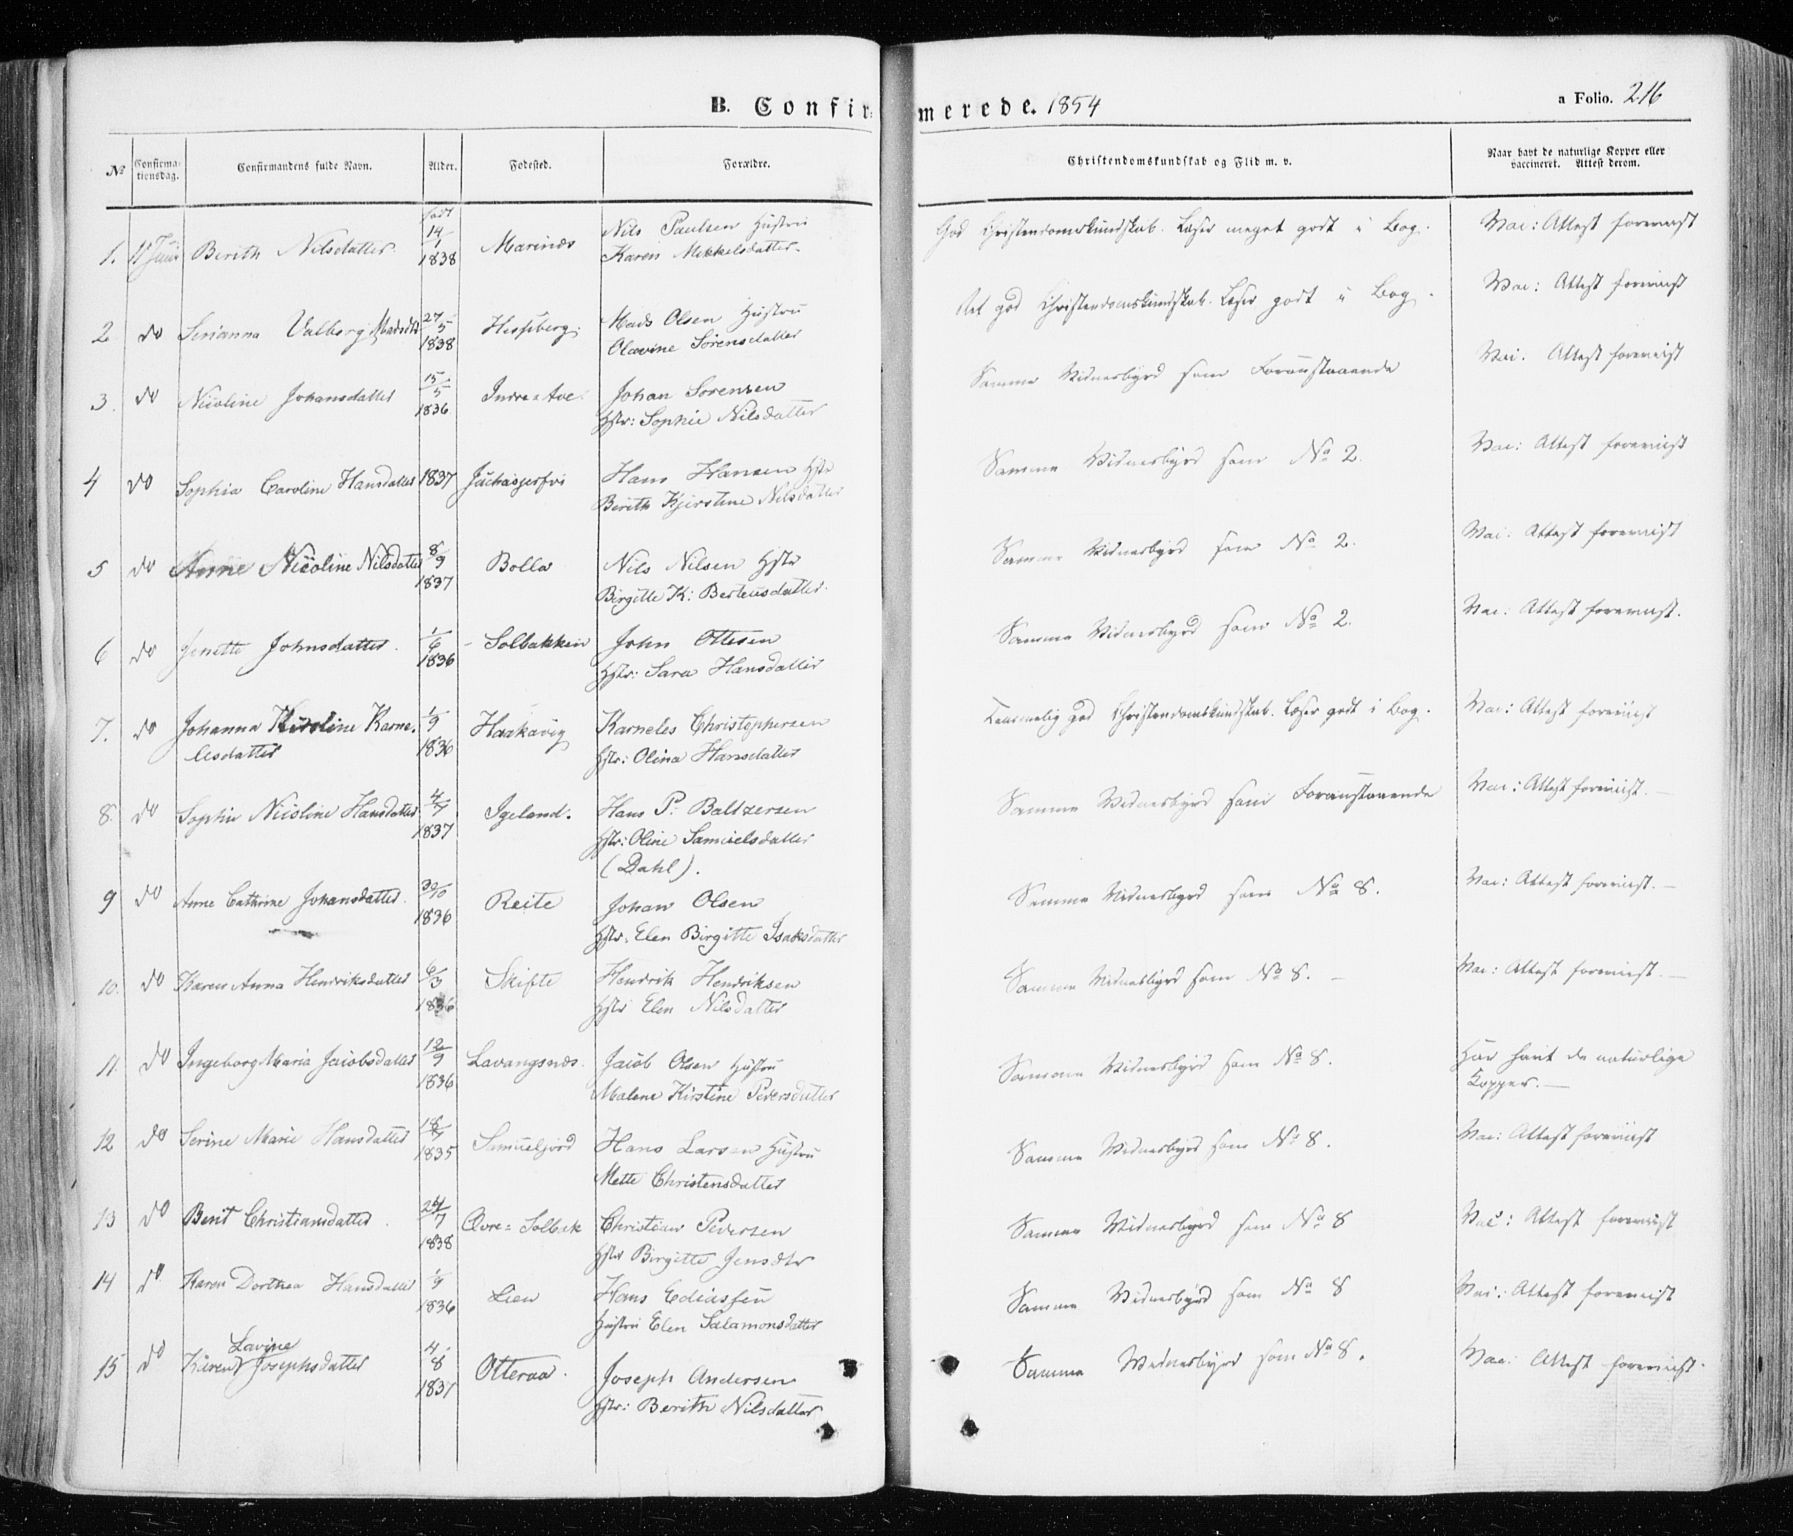 B. Confirmerede. 1854
a Folio. 216
No
Confirmationsdag.
Confirmandens fulde Navn.
Alder.
Fødested.
Forældre.
Christendomskundskab og Flid m. v.
Naar havt de naturlige Kopper eller vaccineret. Attest derom.
1. 11 Juni Berith Nilsdatter. født 14/1 1838 Marinæs Nils Paulsen Hustru God Christendomskundskab. Læser meget godt i Bog. Vac: Attest foreviist
Karen Mikkelsdatter.
2. do Serianna Valborg Madsdtr 27/5 1838 Hessberg. Mads Olsen Hustru Ret god Christendomskundskab. Læser godt i Bog. Vac: Attest foreviist
Olavine Sörensdatter
3. do Nicoline Johansdatter 15/5 1836 Indre = Johan Sörensen Samme Vidnesbyrd som Foranstaaende Vac. Attest foreviist
Hstr: Sophie Nilsdatter
4 do Sophia Caroline Hansdatter 1837 Hans Hansen Hstr Samme Vidnesbyrd som No 2. Vac: Attest foreviist
Berith Kjerstine Nilsdatter
5 do Anne Nicoline Nilsdatter 8/9 1837 Bolla Nils Nilsen Hstr Samme Vidnesbyrd som No 2. Vac. Attest foreviist
Birgitte K: Berteusdatter.
6 do Jenette Johnsdatter. 1/6 1836 Solbakken John Ottesen Samme Vidnesbyrd som No 2. Vac: Attest foreviist.
Hstr: Sara Hansdatter
7. do Johanna Karnelisdatter 1/9 1836 Haakavig Karneles Christophersen Temmelig god Christendomskundskab. Læser godt i Bog. Vac: Attest foreviist
Hstr: Olina Hansdatter
8. do Sophie Nicoline Hansdatter 4/7 1837 Igeland. Hans P. Baltzersen Samme Vidnesbyrd som Foranstaaende Vac: Attest foreviist.
Hstr: Oline Samuelsdatter
(Dahl).
9 do Anne Cathrine Johansdatter. 30/10 1836 Reite Johan Olsen Samme Vidnesbyrd som No 8. Vac: Attest foreviist.
Hstr. Elen Birgitte Isaksdatter
10. do Karen Anna Hendriksdatter 6/3 1836 Skifte Hendrik Hendriksen Samme Vidnesbyrd som No 8. Vac: Attest foreviist.
Hstr Elen Nilsdatter
11. do Ingeborg Maria Jacobsdatter 12/9 1836 Lavangsnæs. Jacob Olsen Hustru Samme Vidnesbyrd som No 8. Har havt de naturlige
Malene Kirstine Pedersdatter Kopper.
12 do Serine Marie Hansdatter 1835 Samuelfjord Hans Larsen Hustru Samme Vidnesbyrd som No 8. Vac: Attest foreviist
Mette Christensdatter
13 do Berit Christiansdatter. 24/7 1838 Øvre = Solbak Christian Pedersen Samme Vidnesbyrd som No 8 Vac: Attest foreviist
Hstr Birgitte Jensdtr
14 do Karen Dorthea Hansdatter 1/9 1836 Lien Hans Ediassen Samme Vidnesbyrd som No 8 Vac.: Attest foreviist
Hustru Elen Salamonsdatter
15 do Karen Lavine Josephsdatter 4/8 1837 Otteraa. Joseph Andersen Samme Vidnesbyrd som No 8. Vac: Attest foreviist.
Hstr: Berith Nilsdatter